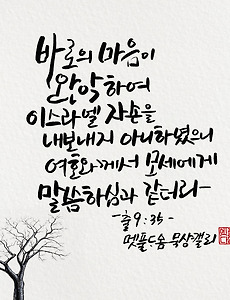 바로의 마음이
완악하여
이스라엘 자손을
내보내지 아니하였으니
여호와께서 모세에게
말씀하심과 같더라-
-출9:35-
멧풀드움 묵상캘리